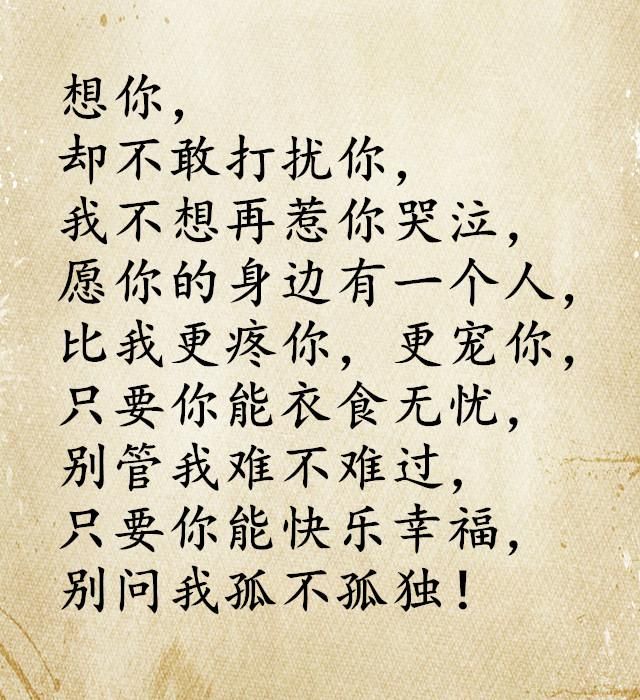 想你，
却不敢打扰你，
我不想再惹你哭泣，
愿你的身边有一个人，
比我更疼你，更宠你，
只要你能衣食无忧，
别管我难不难过，
只要你能快乐幸福，
别问我孤不孤独！